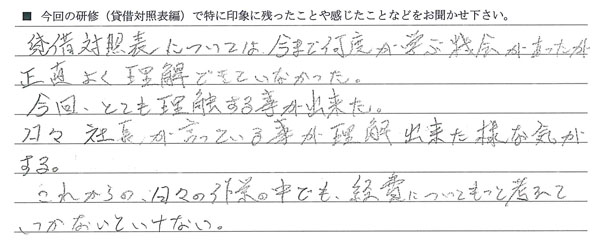 ■ 今回の研修（貸借対照表編）で特に印象に残ったことや感じたことなどをお聞かせ下さい。
貸借対照表については、今まで何度か学ぶ機会があったが
正直よく理解できていなかった。
今回、とても理解する事が出来た。
日々社長が言っている事が理解出来た様な気が
する。
これからの、日々の作業の中でも、経費についてもっと考えて
いかないといけない。